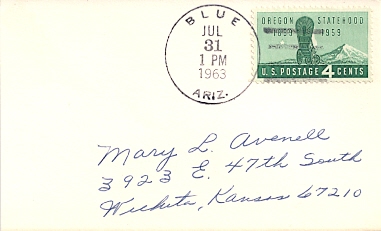 BLUE
JUL
31
1 PM
1963
ARIZ.
OREGON STATEHOOD
1859 1959
U.S. POSTAGE 4 CENTS
Mary L. Avenell
3923 E. 47th South
Wichita, Kansas 67210